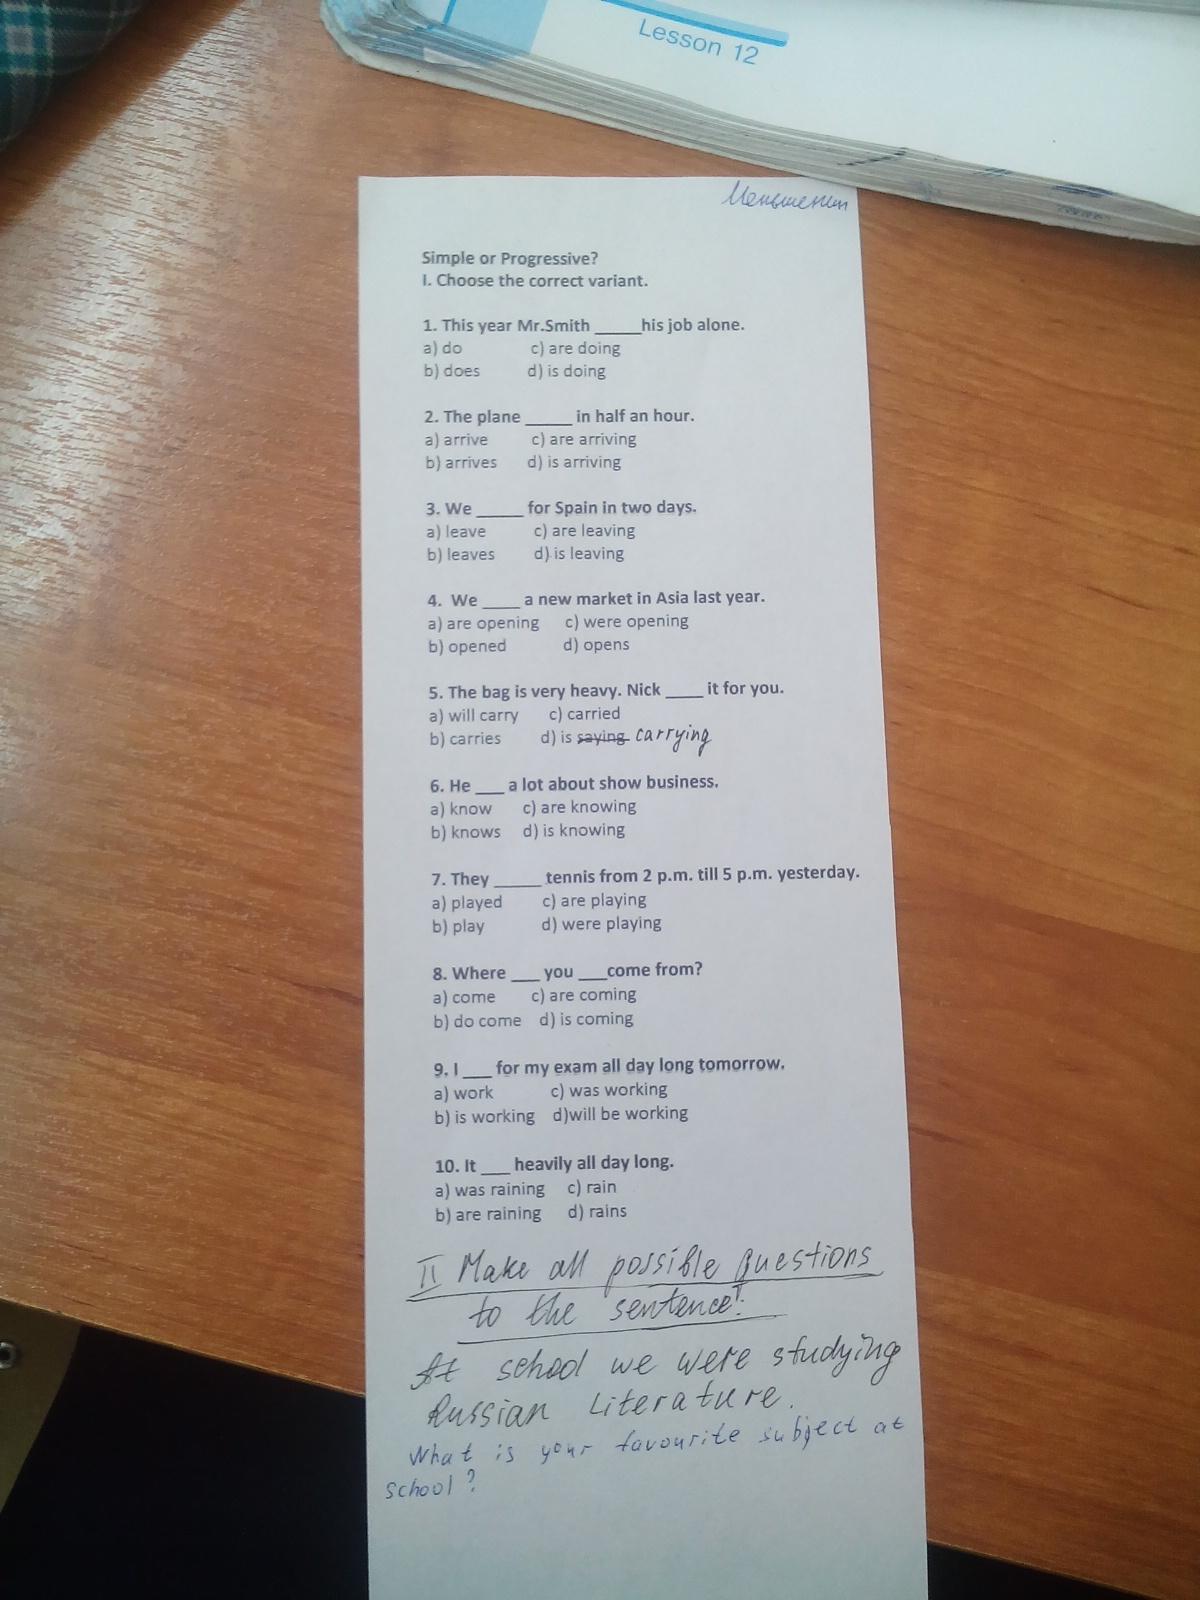 Lesson 12
Simple or Progressive?
I. Choose the correct variant.
1. This year Mr.Smith _____his job alone.
a) do c) are doing
b) does d) is doing
2. The plane _____ in half an hour.
a) arrive c) are arriving
b) arrives d) is arriving
3. We _____ for Spain in two days.
a) leave c) are leaving
b) leaves d) is leaving
4. We ____ a new market in Asia last year.
a) are opening c) were opening
b) opened d) opens
5. The bag is very heavy. Nick ____ it for you.
a) will carry c) carried
b) carries d) is saying carrying
6. He ___ a lot about show business.
a) know c) are knowing
b) knows d) is knowing
7. They _____ tennis from 2 p.m. till 5 p.m. yesterday.
a) played c) are playing
b) play d) were playing
8. Where ___ you ___come from?
a) come c) are coming
b) do come d) is coming
9. I ___ for my exam all day long tomorrow.
a) work c) was working
b) is working d)will be working
10. It ___ heavily all day long.
a) was raining c) rain
b) are raining d) rains
II Make all possible questions
to the sentence!:
At school we were studying
Russian Literature.
What is your favourite subject at
school?